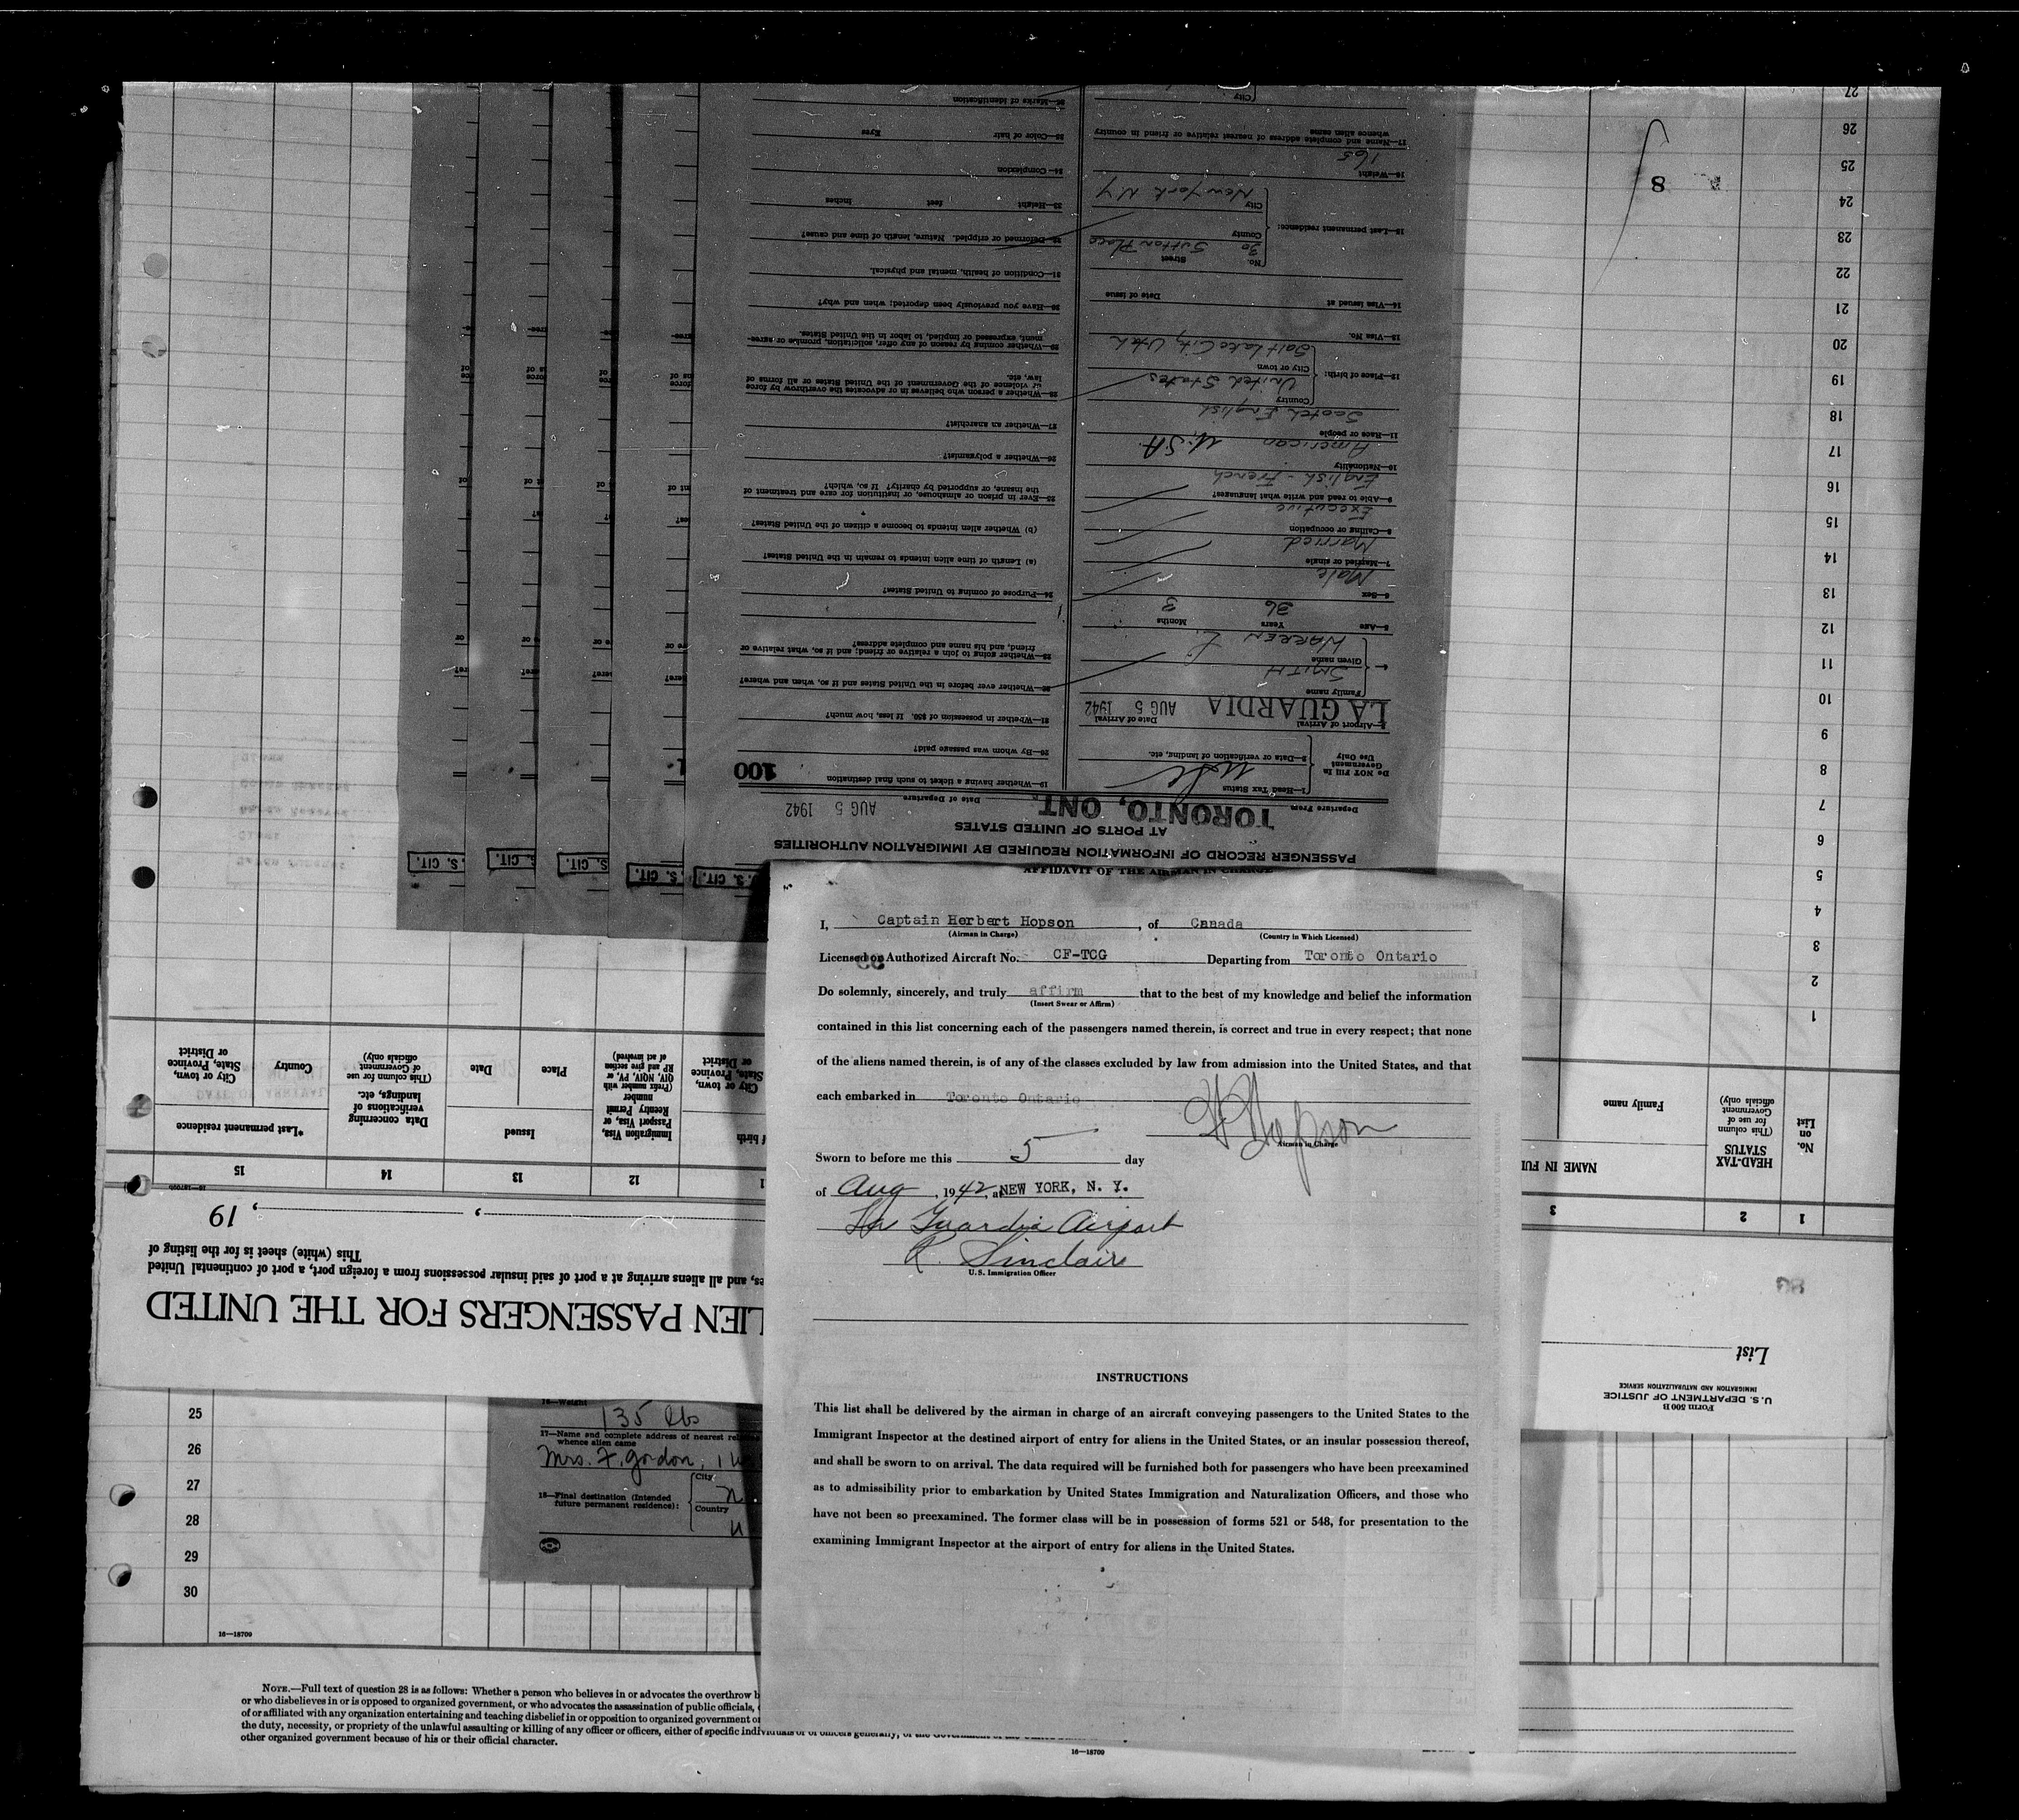 PASSENGER RECORD OF INFORMATION REQUIRED BY IMMIGRATION AUTHORITIES
AT PORTS OF UNITED STATES
Departure From TORONTO, ONT. Date of Departure AUG 5 1942
Do NOT Fill In
Government
Use Only
1—Head Tax Status
2—Data or verification of landing, etc.
3—Airport of Arrival LA GUARDIA Date of Arrival AUG 5 1942
4— Family name SMITH
Given name WARREN
5—Age 36 Years 3 Months
6—Sex Male
7—Married or single Married
8—Calling or occupation Executive
9—Able to read and write what languages? English - French
10—Nationality American U.S.A
11—Race or people Scotch English
12—Place of birth: Country United States
City or town Salt Lake City Utah
13—Visa No.
14—Visa issued at Date of issue
15—Last permanent residence: No. 30 Street Sutton Place
County
City New York N Y
16—Weight 165
17—Name and complete address of nearest relative or friend in country
whence alien came
City
19—Whether having a ticket to such final destination 100
20—By whom was passage paid?
21—Whether in possession of $50. If less, how much?
22—Whether ever before in the United States and if so, when and where?
23—Whether going to join a relative or friend; and if so, what relative or
friend, and his name and complete address?
24—Purpose of coming to United States?
(a) Length of time alien intends to remain in the United States?
(b) Whether alien intends to become a citizen of the United States?
25—Ever in prison or almshouse, or institution for care and treatment of
the insane, or supported by charity? If so, which?
26—Whether a polygamist?
27—Whether an anarchist?
28—Whether a person who believes in or advocates the overthrow by force
or violence of the Government of the United States or all forms of
law, etc.
29—Whether coming by reason of any offer, solicitation, promise or agree-
ment, expressed or implied, to labor in the United States.
30—Have you previously been deported; when and why?
31—Condition of health, mental and physical.
32—Deformed or crippled. Nature, length of time and cause?
33—Height feet inches
34—Complexion
35—Color of hair Eyes
36—Marks of identification
S. CIT.
S. CIT.
S. CIT.
S. CIT.
U. S. CIT.
8
AFFIDAVIT OF THE AIRMAN IN CHARGE
I, Captain Herbert Hopson, of Canada
(Airman in Charge) (Country in Which Licensed)
Licensed or Authorized Aircraft No. CF-TCG Departing from Toronto Ontario
Do solemnly, sincerely, and truly affirm that to the best of my knowledge and belief the information
(Insert Swear or Affirm)
contained in this list concerning each of the passengers named therein, is correct and true in every respect; that none
of the aliens named therein, is of any of the classes excluded by law from admission into the United States, and that
each embarked in Toronto Ontario
H Hopson
Airman in Charge
Sworn to before me this 5 day
of Aug, 1942, at NEW YORK, N. Y.
La Guardia Airport
R. Sinclair
U.S. Immigration Officer
INSTRUCTIONS
This list shall be delivered by the airman in charge of an aircraft conveying passengers to the United States to the
Immigrant Inspector at the destined airport of entry for aliens in the United States, or an insular possession thereof,
and shall be sworn to on arrival. The data required will be furnished both for passengers who have been preexamined
as to admissibility prior to embarkation by United States Immigration and Naturalization Officers, and those who
have not been so preexamined. The former class will be in possession of forms 521 or 548, for presentation to the
examining Immigrant Inspector at the airport of entry for aliens in the United States.
Form 500 B
U. S. DEPARTMENT OF JUSTICE
IMMIGRATION AND NATURALIZATION SERVICE
List
LIEN PASSENGERS FOR THE UNITED
es, and all aliens arriving at a port of said insular possessions from a foreign port, a port of continental United
This (white) sheet is for the listing of
, 19
1 2 3
No.
on
List
HEAD-TAX
STATUS
(This column
for use of
Government
officials only)
NAME IN FU
Family name
12 13 14 15
Immigration Visa,
Passport Visa, or
Reentry Permit
number
(Prefix number with
QIV, NQIV, PV, or
RP and give section
of act involved)
Issued
Place
Date
Data concerning
verifications of
landings, etc.
(This column for use
of Government
officials only)
*Last permanent residence
Country
City or town,
State, Province
or District
f birth
City or town,
State, Province
or District
1
2
3
4
5
6
7
8
9
10
11
12
13
14
15
16
17
18
19
20
21
22
23
24
25
26
27
25
26
27
28
29
30
16—Weight 135 lbs
17—Name and complete address of nearest rel
whence alien came
Mrs. F. Gordon,
18—Final destination (Intended
future permanent residence):
City
Country
16—18709
NOTE.—Full text of question 28 is as follows: Whether a person who believes in or advocates the overthrow b
or who disbelieves in or is opposed to organized government, or who advocates the assassination of public officials,
of or affiliated with any organization entertaining and teaching disbelief in or opposition to organized government or
the duty, necessity, or propriety of the unlawful assaulting or killing of any officer or officers, either of specific individuals or of officers generally, of the Government of the United
other organized government because of his or their official character.
16—18709